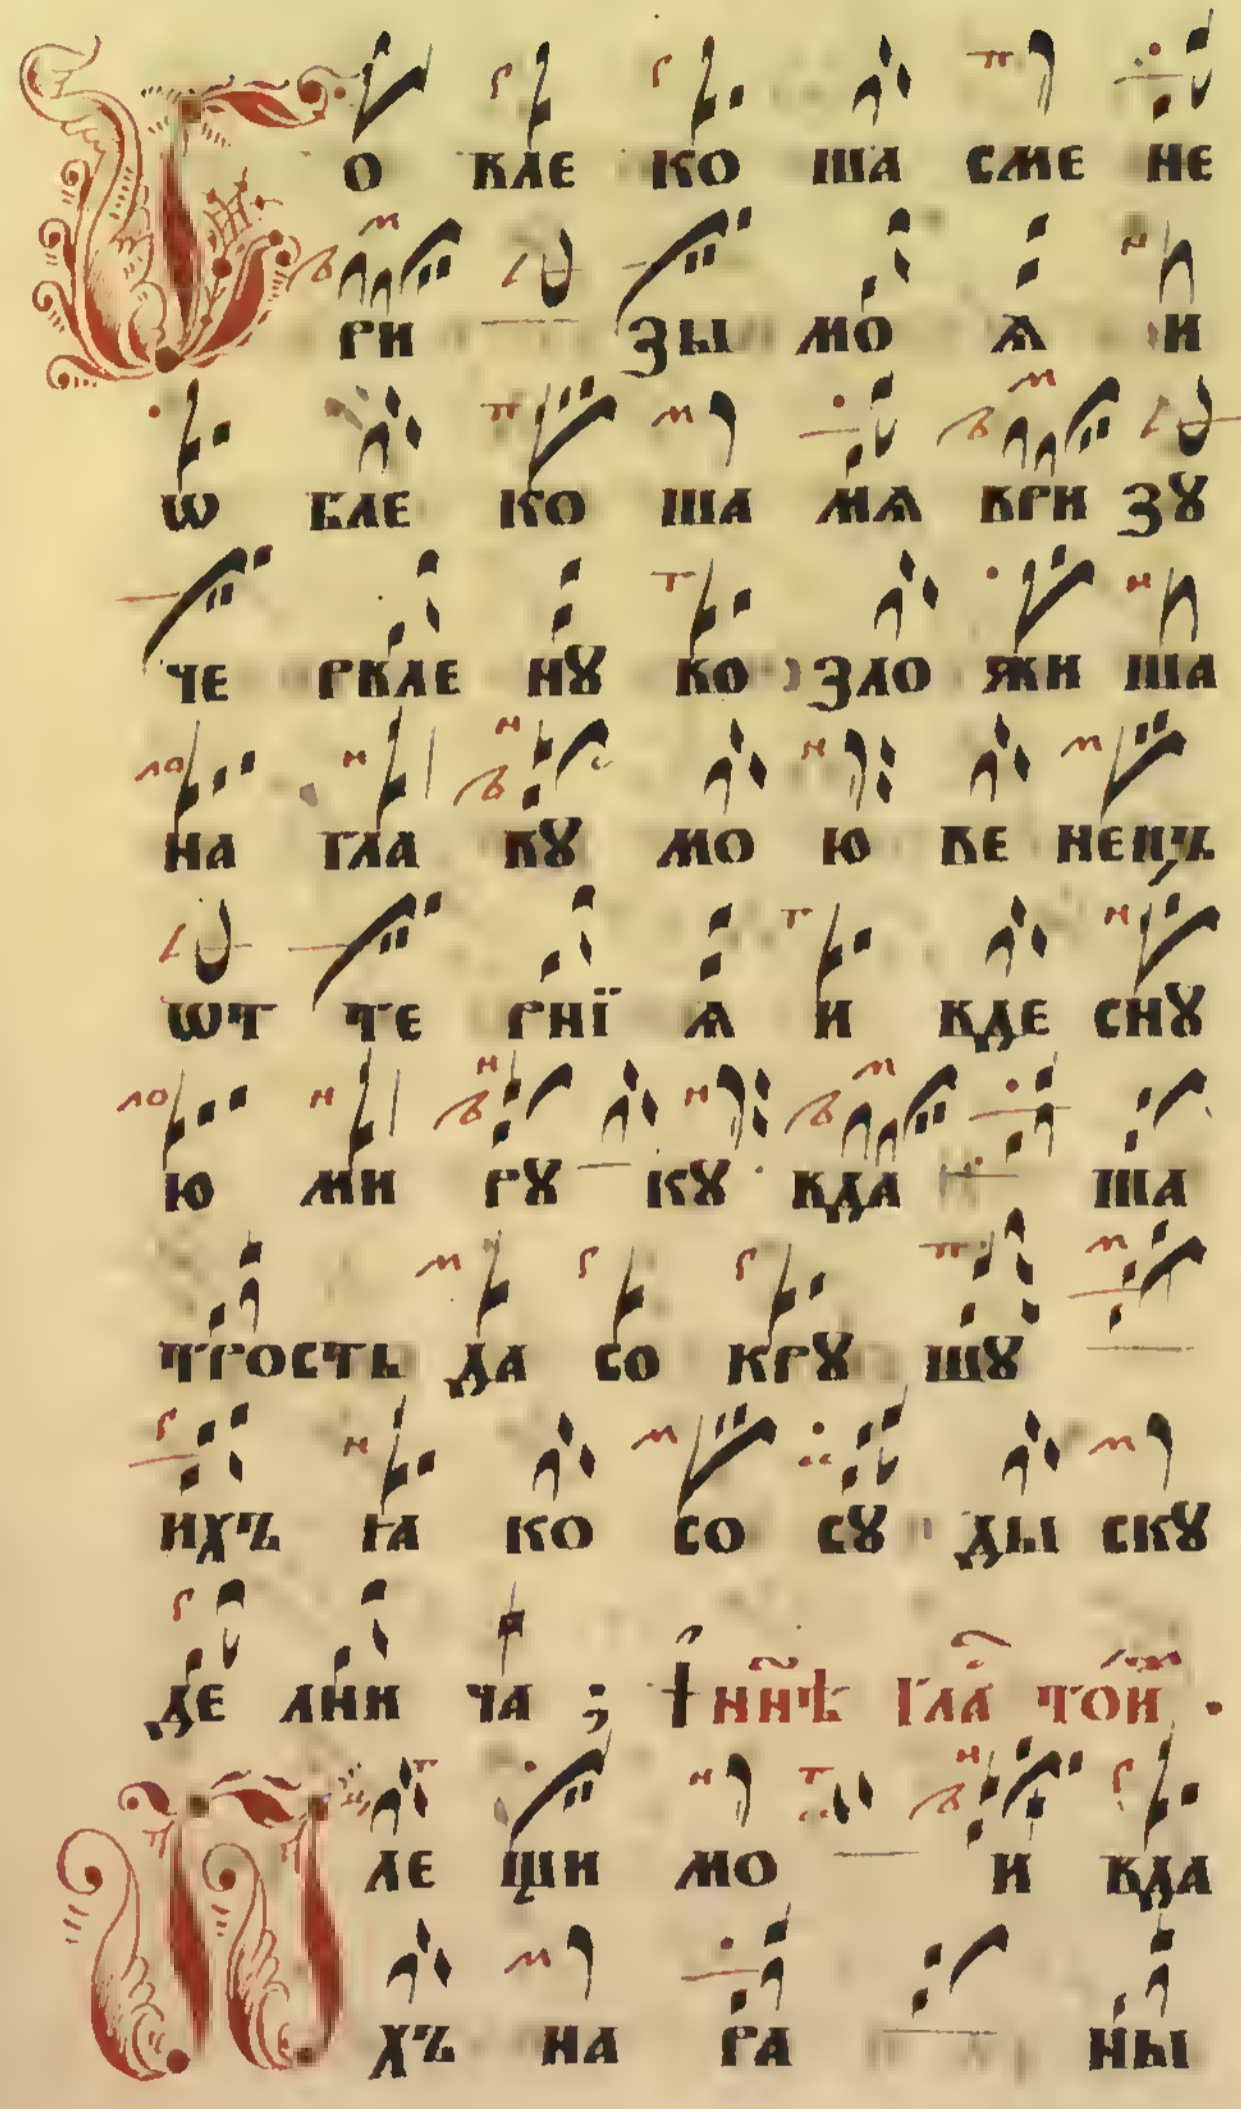 СО ВЛЕ КО ША СМЕ НЕ
РИ ЗЫ МО Ѧ И
Ѡ БЛЕ КО ША МѦ ВРИ ЗꙊ
ЧЕ РВЛЕ НꙊ ВО ЗЛО ЖИ ША
НА ГЛА ВꙊ МО Ю ВЕ НЕЦЪ
ѠТ ТЕ РНЇ Ѧ И ВДЕ СНꙊ
Ю МИ РꙊ КꙊ ВДА ША
ТРОСТЬ ДА СО КРꙊ ШꙊ
ИХЪ ꙖКО СО СꙊ ДЫ СКꙊ
ДЕ ЛНИ ЧА ; І НН҃Ѣ ГЛА ТОЙ .
ПЛЕ ЩИ МО И ВДА
ХЪ НА РА НЫ